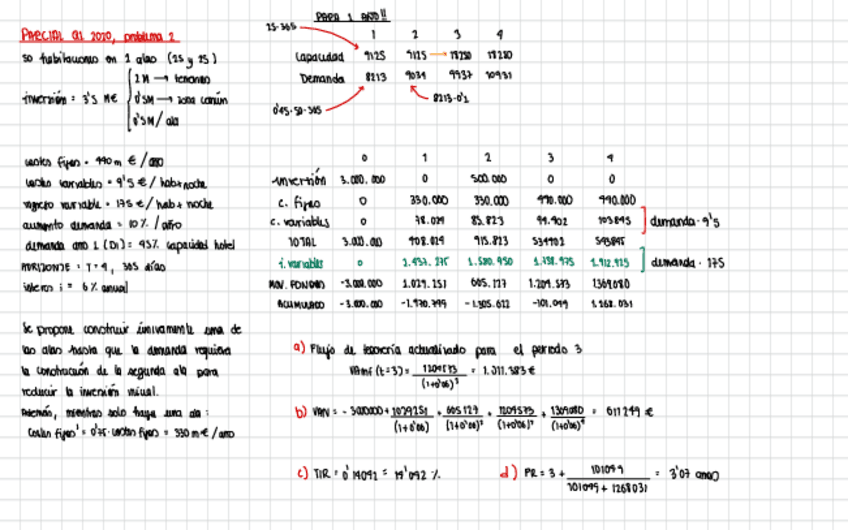 PARCIAL Q1 2020, problema 2
50 habitaciones en 2 alas (25 y 25)
inversión = 3'5 M€
2M → terreno
0'5M → zona común
0'5M / ala
PARA 1 AÑO!!
25·365
1 2 3 4
Capacidad 9125 9125 → 18250 18250
Demanda 8213 9034 9937 10931
0'45·50·365
8213·0'1
costes fijos = 440m € / año
costes variables = 9'5 € / hab+noche
ingreso variable = 175 € / hab + noche
aumento demanda = 10% / año
demanda año 1 (D1) = 45% capacidad hotel
HORIZONTE = T=4, 365 días
interés i = 6% anual
Se propone construir únicamente una de
las alas hasta que la demanda requiera
la construcción de la segunda ala para
reducir la inversión inicial.
Además, mientras solo haya una ala:
Costes fijos' = 0'75 · costes fijos = 330m€ / año
0 1 2 3 4
inversión 3.000.000 0 500.000 0 0
c. fijos 0 330.000 330.000 440.000 440.000
c. variables 0 78.024 85.823 94.402 103845 demanda·9'5
TOTAL 3.000.000 408.024 915.823 534402 543845
i. variables 0 1.437.275 1.580.950 1.738.975 1.912.925 demanda · 175
MOV. FONDOS -3.000.000 1.029.251 665.127 1.204.573 1369080
ACUMULADO -3.000.000 -1.970.749 -1.305.622 -101.049 1.268.031
a) Flujo de tesorería actualizado para el periodo 3
VAmf (t=3) = 1204573 / (1+0'06)³ = 1.011.383 €
b) VAN = -3000000 + 1029251 / (1+0'06) + 665127 / (1+0'06)² + 1204573 / (1+0'06)³ + 1369080 / (1+0'06)⁴ = 611249 €
c) TIR = 0'14092 = 14'092 %
d) PR = 3 + 101099 / 101099 + 1268031 = 3'07 años